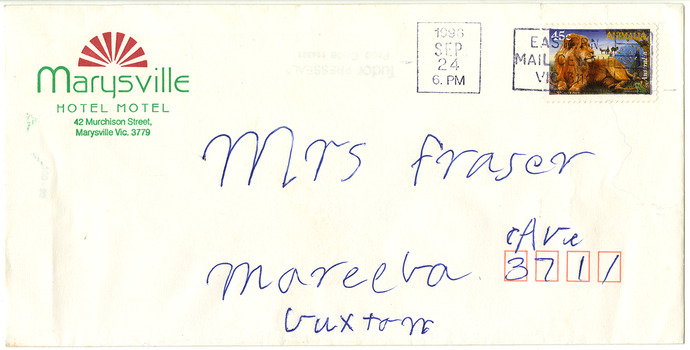 Marysville
HOTEL MOTEL
42 Murchison Street,
Marysville Vic. 3779
1996
SEP
24
6. PM
EASTERN
MAIL
VIC
45c
ANIMALIA
Australia
Mrs Fraser
Ave
Mareeba
3711
Buxton